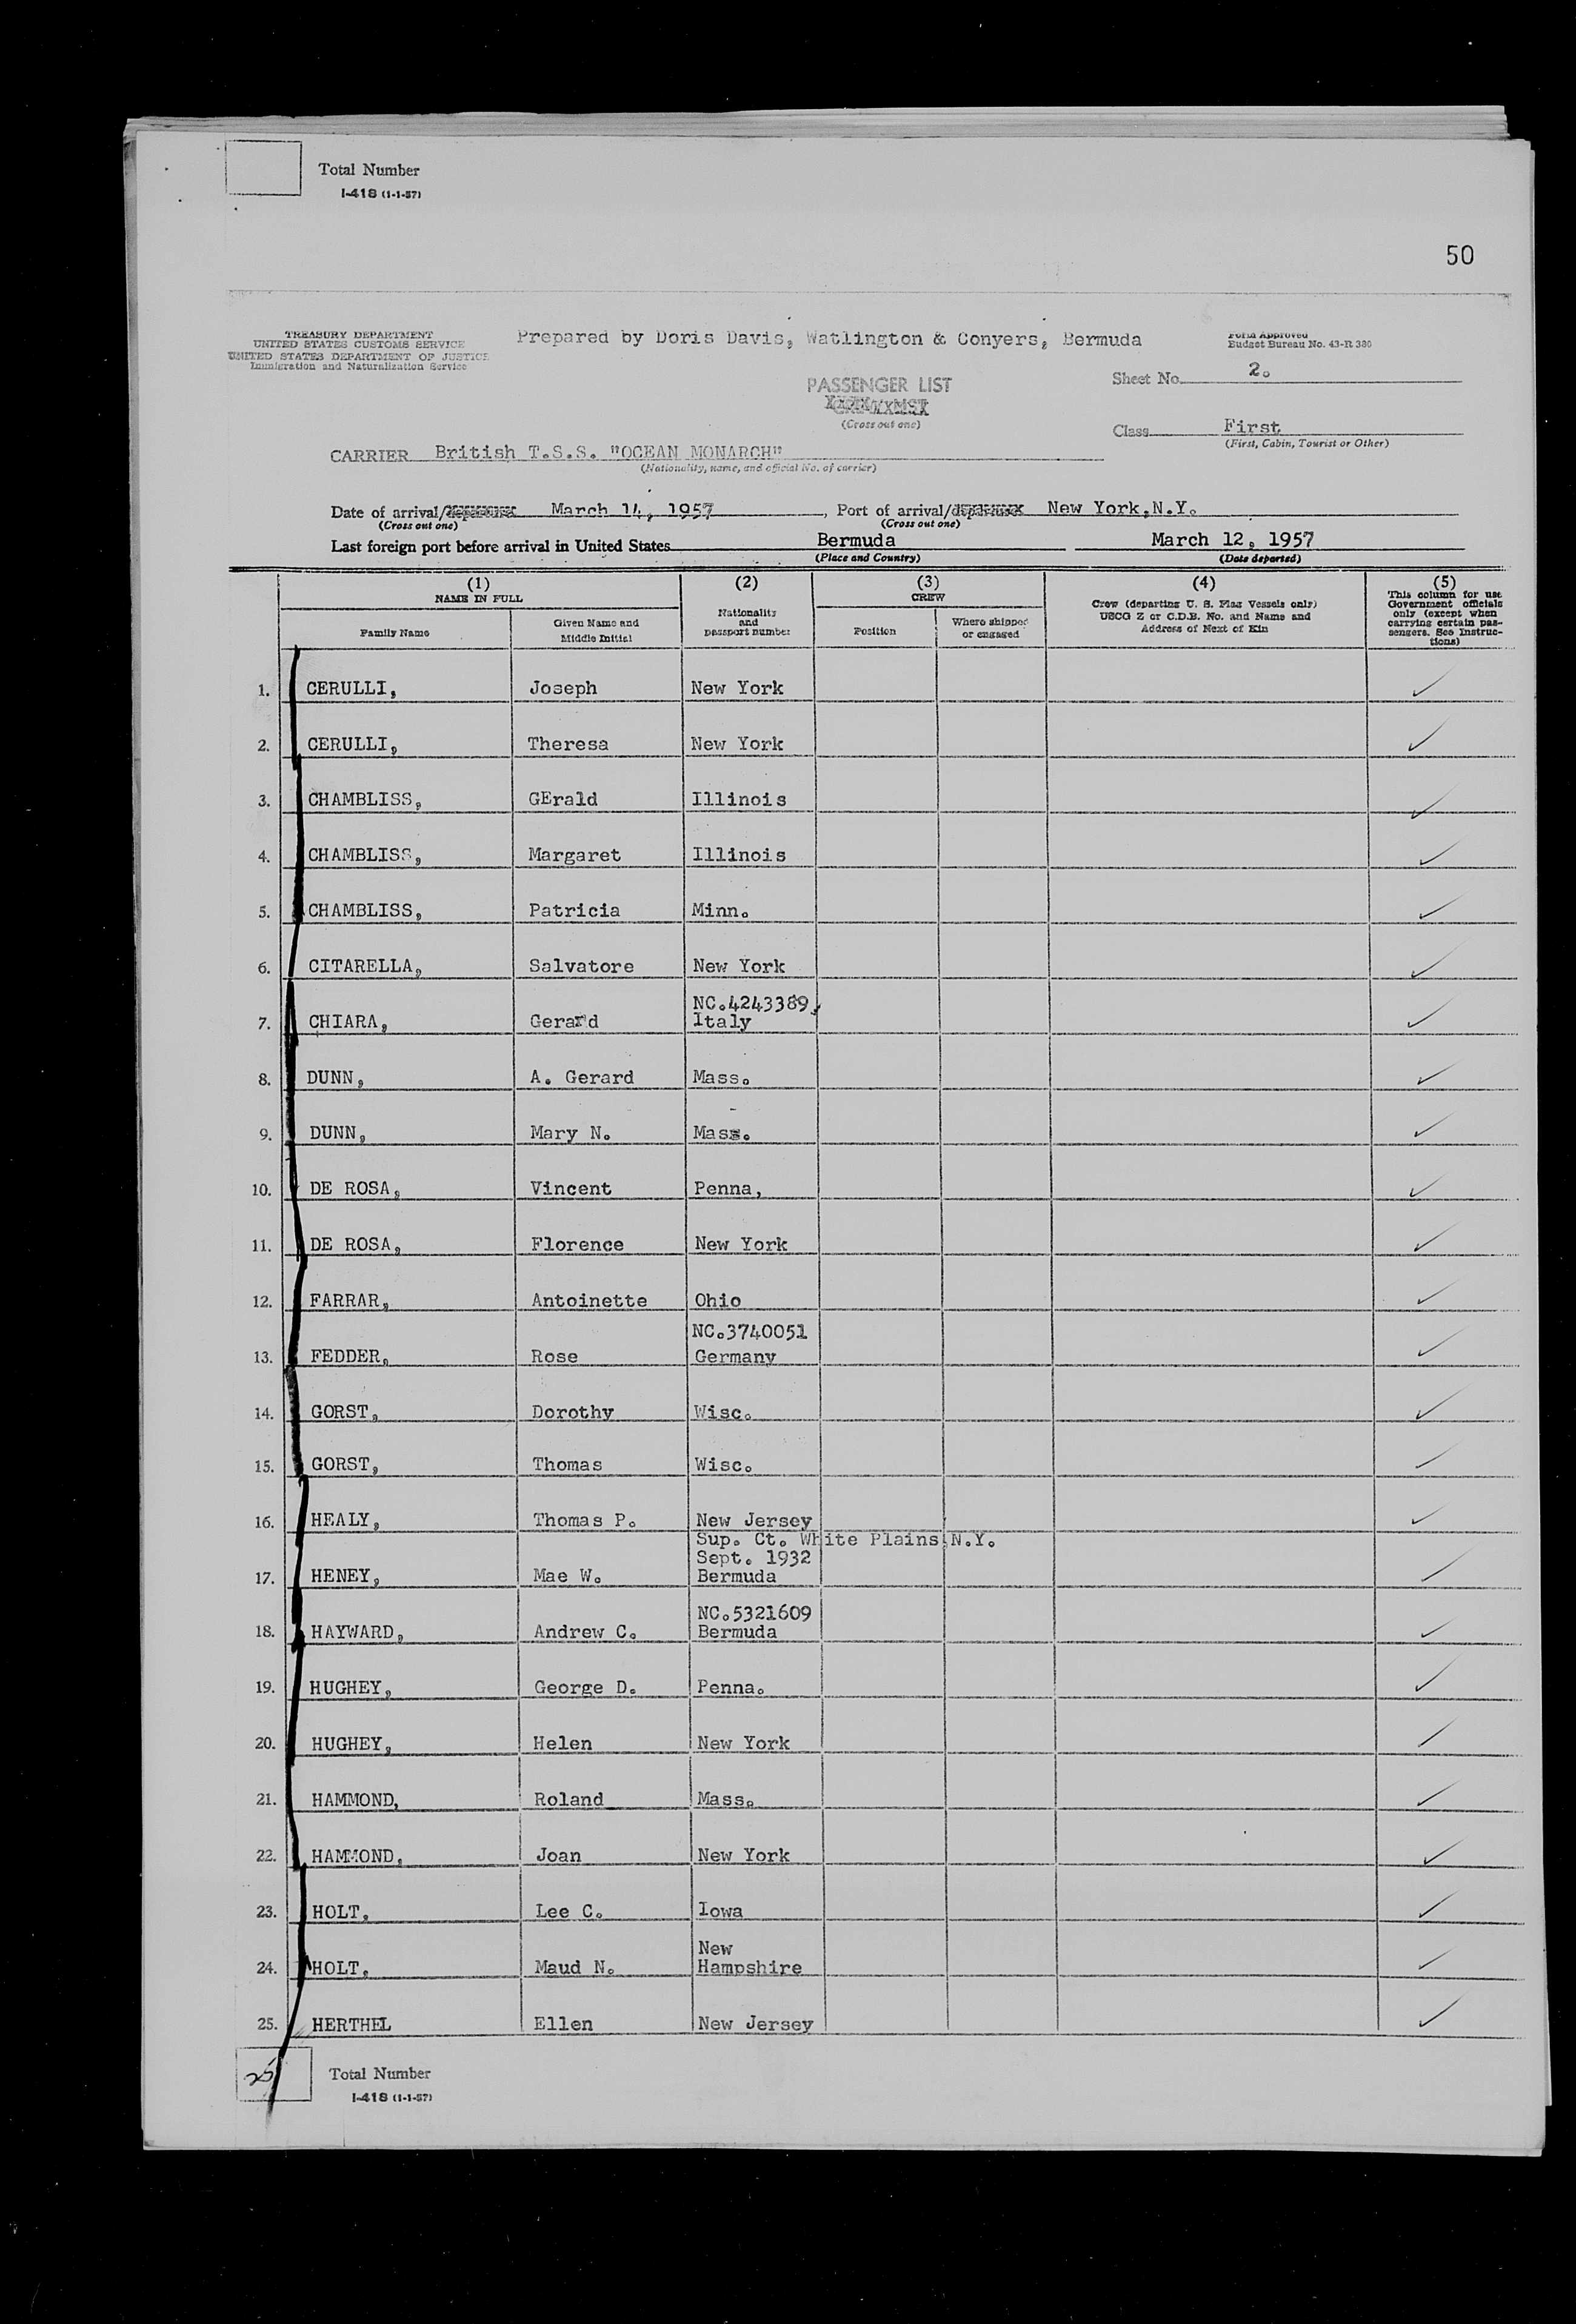 Total Number
I-418 (1-1-57)
50
TREASURY DEPARTMENT
UNITED STATES CUSTOMS SERVICE
UNITED STATES DEPARTMENT OF JUSTICE
Immigration and Naturalization Service
Prepared by Doris Davis, Watlington & Conyers, Bermuda
Form Approved
Budget Bureau No. 43-R 380
Sheet No. 2.
PASSENGER LIST
(Cross out one)
Class First
(First, Cabin, Tourist or Other)
CARRIER British T.S.S. "OCEAN MONARCH"
(Nationality, name, and official No. of carrier)
Date of arrival/ March 14, 1957, Port of arrival/ New York,N.Y.
(Cross out one) (Cross out one)
Last foreign port before arrival in United States Bermuda March 12, 1957
(Place and Country) (Date departed)
(1) (2) (3) (4) (5)
NAME IN FULL
Family Name
Given Name and
Middle Initial
Nationality
and
passport number
CREW
Position
Where shipped
or engaged
Crew (departing U. S. Flag Vessels only)
USCG Z or C.D.B. No. and Name and
Address of Next of Kin
This column for use
Government officials
only (except when
carrying certain pas-
sengers. See Instruc-
tions)
1. CERULLI, Joseph New York
2. CERULLI, Theresa New York
3. CHAMBLISS, GErald Illinois
4. CHAMBLISS, Margaret Illinois
5. CHAMBLISS, Patricia Minn.
6. CITARELLA, Salvatore New York
NC.4243389,
7. CHIARA, Gerard Italy
8. DUNN, A. Gerard Mass.
9. DUNN, Mary N. Mass.
10. DE ROSA, Vincent Penna,
11. DE ROSA, Florence New York
12. FARRAR, Antoinette Ohio
NC.3740051
13. FEDDER, Rose Germany
14. GORST, Dorothy Wisc.
15. GORST, Thomas Wisc.
16. HEALY, Thomas P. New Jersey
Sup. Ct. White Plains,N.Y.
Sept. 1932
17. HENEY, Mae W. Bermuda
NC.5321609
18. HAYWARD, Andrew C. Bermuda
19. HUGHEY, George D. Penna.
20. HUGHEY, Helen New York
21. HAMMOND, Roland Mass.
22. HAMMOND, Joan New York
23. HOLT, Lee C. Iowa
New
24. HOLT, Maud N. Hampshire
25. HERTHEL Ellen New Jersey
25
Total Number
I-418 (1-1-57)